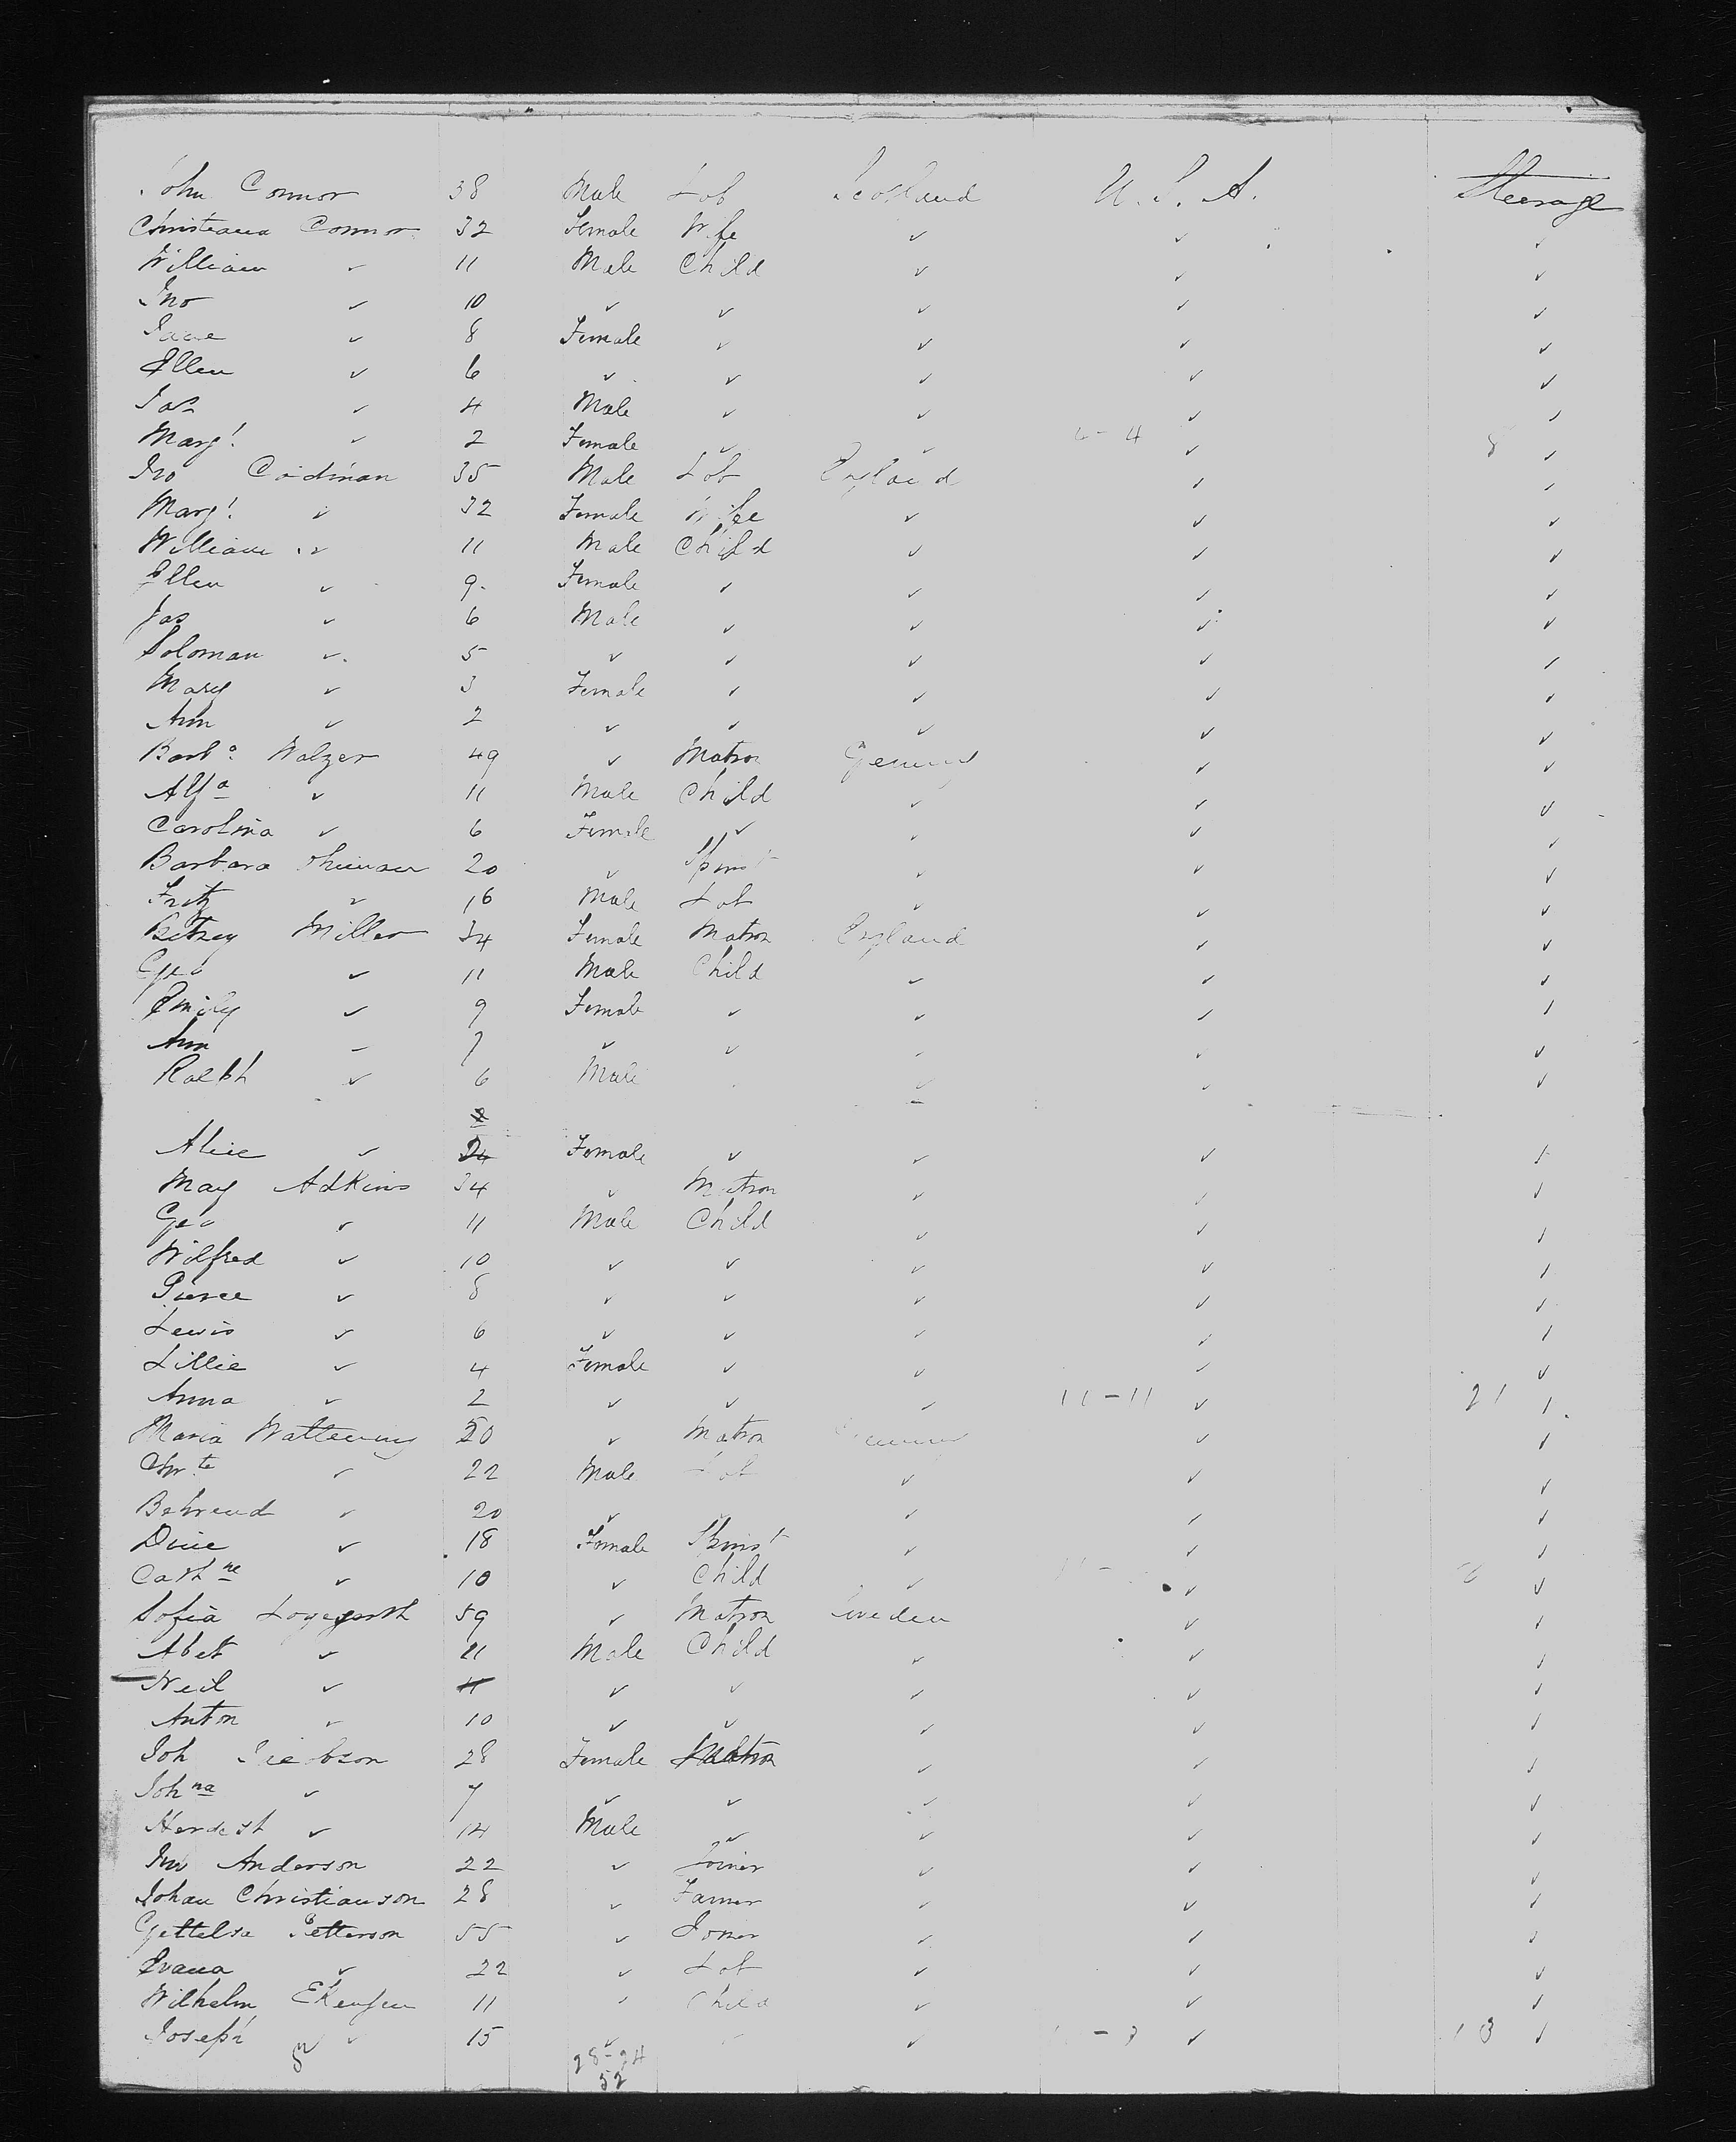 John Connor 38 Male Lab Scotland U. S. A. Steerage
Christiana Connor 32 Female Wife ✓ ✓ ✓
William ✓ 11 Male Child ✓ ✓ ✓
Jno ✓ 10 ✓ ✓ ✓ ✓ ✓
Jane ✓ 8 Female ✓ ✓ ✓ ✓
Ellen ✓ 6 ✓ ✓ ✓ ✓ ✓
Jas ✓ 4 Male ✓ ✓ ✓ ✓
Margt ✓ 2 Female ✓ ✓ 4-4 ✓ 8 ✓
Jno 35 Male Lab England ✓ ✓
Margt ✓ 32 Female Wife ✓ ✓ ✓
William ✓ 11 Male Child ✓ ✓ ✓
Ellen ✓ 9 Female ✓ ✓ ✓ ✓
Jas ✓ 6 Male ✓ ✓ ✓ ✓
Soloman ✓ 5 ✓ ✓ ✓ ✓ ✓
Mary ✓ 3 Female ✓ ✓ ✓ ✓
Ann ✓ 2 ✓ ✓ ✓ ✓ ✓
Barba Walzer 49 ✓ Matron Germy ✓ ✓
Alfa ✓ 11 Male Child ✓ ✓ ✓
Carolina ✓ 6 Female ✓ ✓ ✓ ✓
Barbara 20 ✓ Spinst ✓ ✓ ✓
Fritz ✓ 16 Male Lab ✓ ✓ ✓
Betzey Miller 34 Female Matron England ✓ ✓
Geo ✓ 11 Male Child ✓ ✓ ✓
Emily ✓ 9 Female ✓ ✓ ✓ ✓
Ann ✓ 7 ✓ ✓ ✓ ✓ ✓
Ralph ✓ 6 Male ✓ ✓ ✓
2
Alice ✓ 34 Female ✓ ✓ ✓ ✓
May Adkins 34 ✓ Matron ✓ ✓ ✓
Geo ✓ 11 Male Child ✓ ✓ ✓
Wilfred ✓ 10 ✓ ✓ ✓ ✓ ✓
Pierce ✓ 8 ✓ ✓ ✓ ✓ ✓
Lewis ✓ 6 ✓ ✓ ✓ ✓ ✓
Lillie ✓ 4 Female ✓ ✓ ✓ ✓
Anna ✓ 2 ✓ ✓ ✓ 11-11 ✓ 21 ✓
Maria 50 ✓ Matron ✓ ✓
✓ 22 Male Lab ✓ ✓ ✓
Behrend ✓ 20 ✓ ✓ ✓ ✓ ✓
Dine ✓ 18 Female Spinst ✓ ✓ ✓
Cathne ✓ 10 ✓ Child ✓ ✓ ✓
Sofia 59 ✓ Matron Sweden ✓ ✓
Abet ✓ 11 Male Child ✓ ✓ ✓
Neil ✓ 11 ✓ ✓ ✓ ✓ ✓
Anton ✓ 10 ✓ ✓ ✓ ✓ ✓
Joh Jacobson 28 Female Matron ✓ ✓ ✓
Johna ✓ 7 ✓ ✓ ✓ ✓ ✓
✓ 14 Male ✓ ✓ ✓ ✓
Jno Anderson 22 ✓ Joiner ✓ ✓ ✓
Johan Christianson 28 ✓ Farmer ✓ ✓ ✓
Petterson 55 ✓ ✓ ✓ ✓
✓ 22 ✓ Lab ✓ ✓ ✓
Wilhelm 11 ✓ Child ✓ ✓ ✓
Joseph ✓ 15 ✓ ✓ ✓ 13 ✓
28-24
52